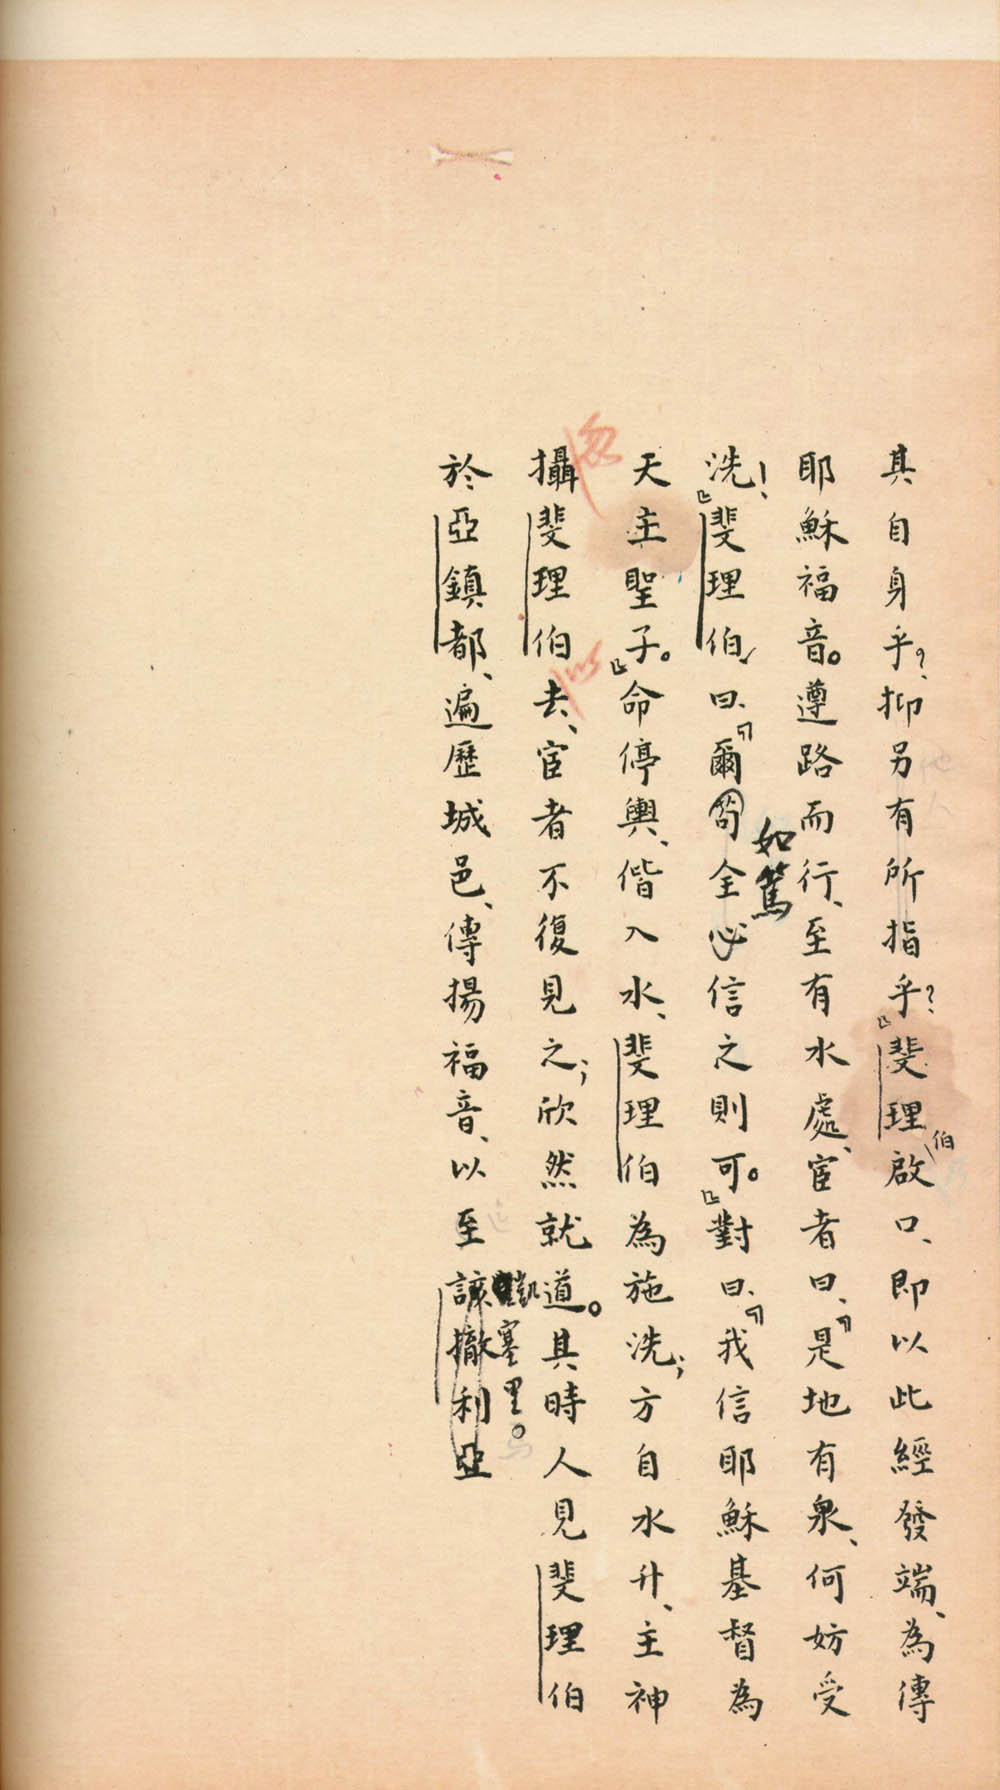 其自身乎？抑另有所指乎？』斐理伯啟口、即以此經發端、為傳
耶穌福音。遵路而行、至有水處、宦者曰、『是地有泉、何妨受
洗！』斐理伯曰、『爾苟全心信之則可。』對曰、『我信耶穌基督為
如篤
天主聖子。』命停輿、偕入水、斐理伯為施洗；方自水升、主神
忽
攝斐理伯去、宦者不復見之；欣然就道。其時人見斐理伯
以
於亞鎮都、遍歷城邑、傳揚福音、以至諒撤利亞
凱塞里。